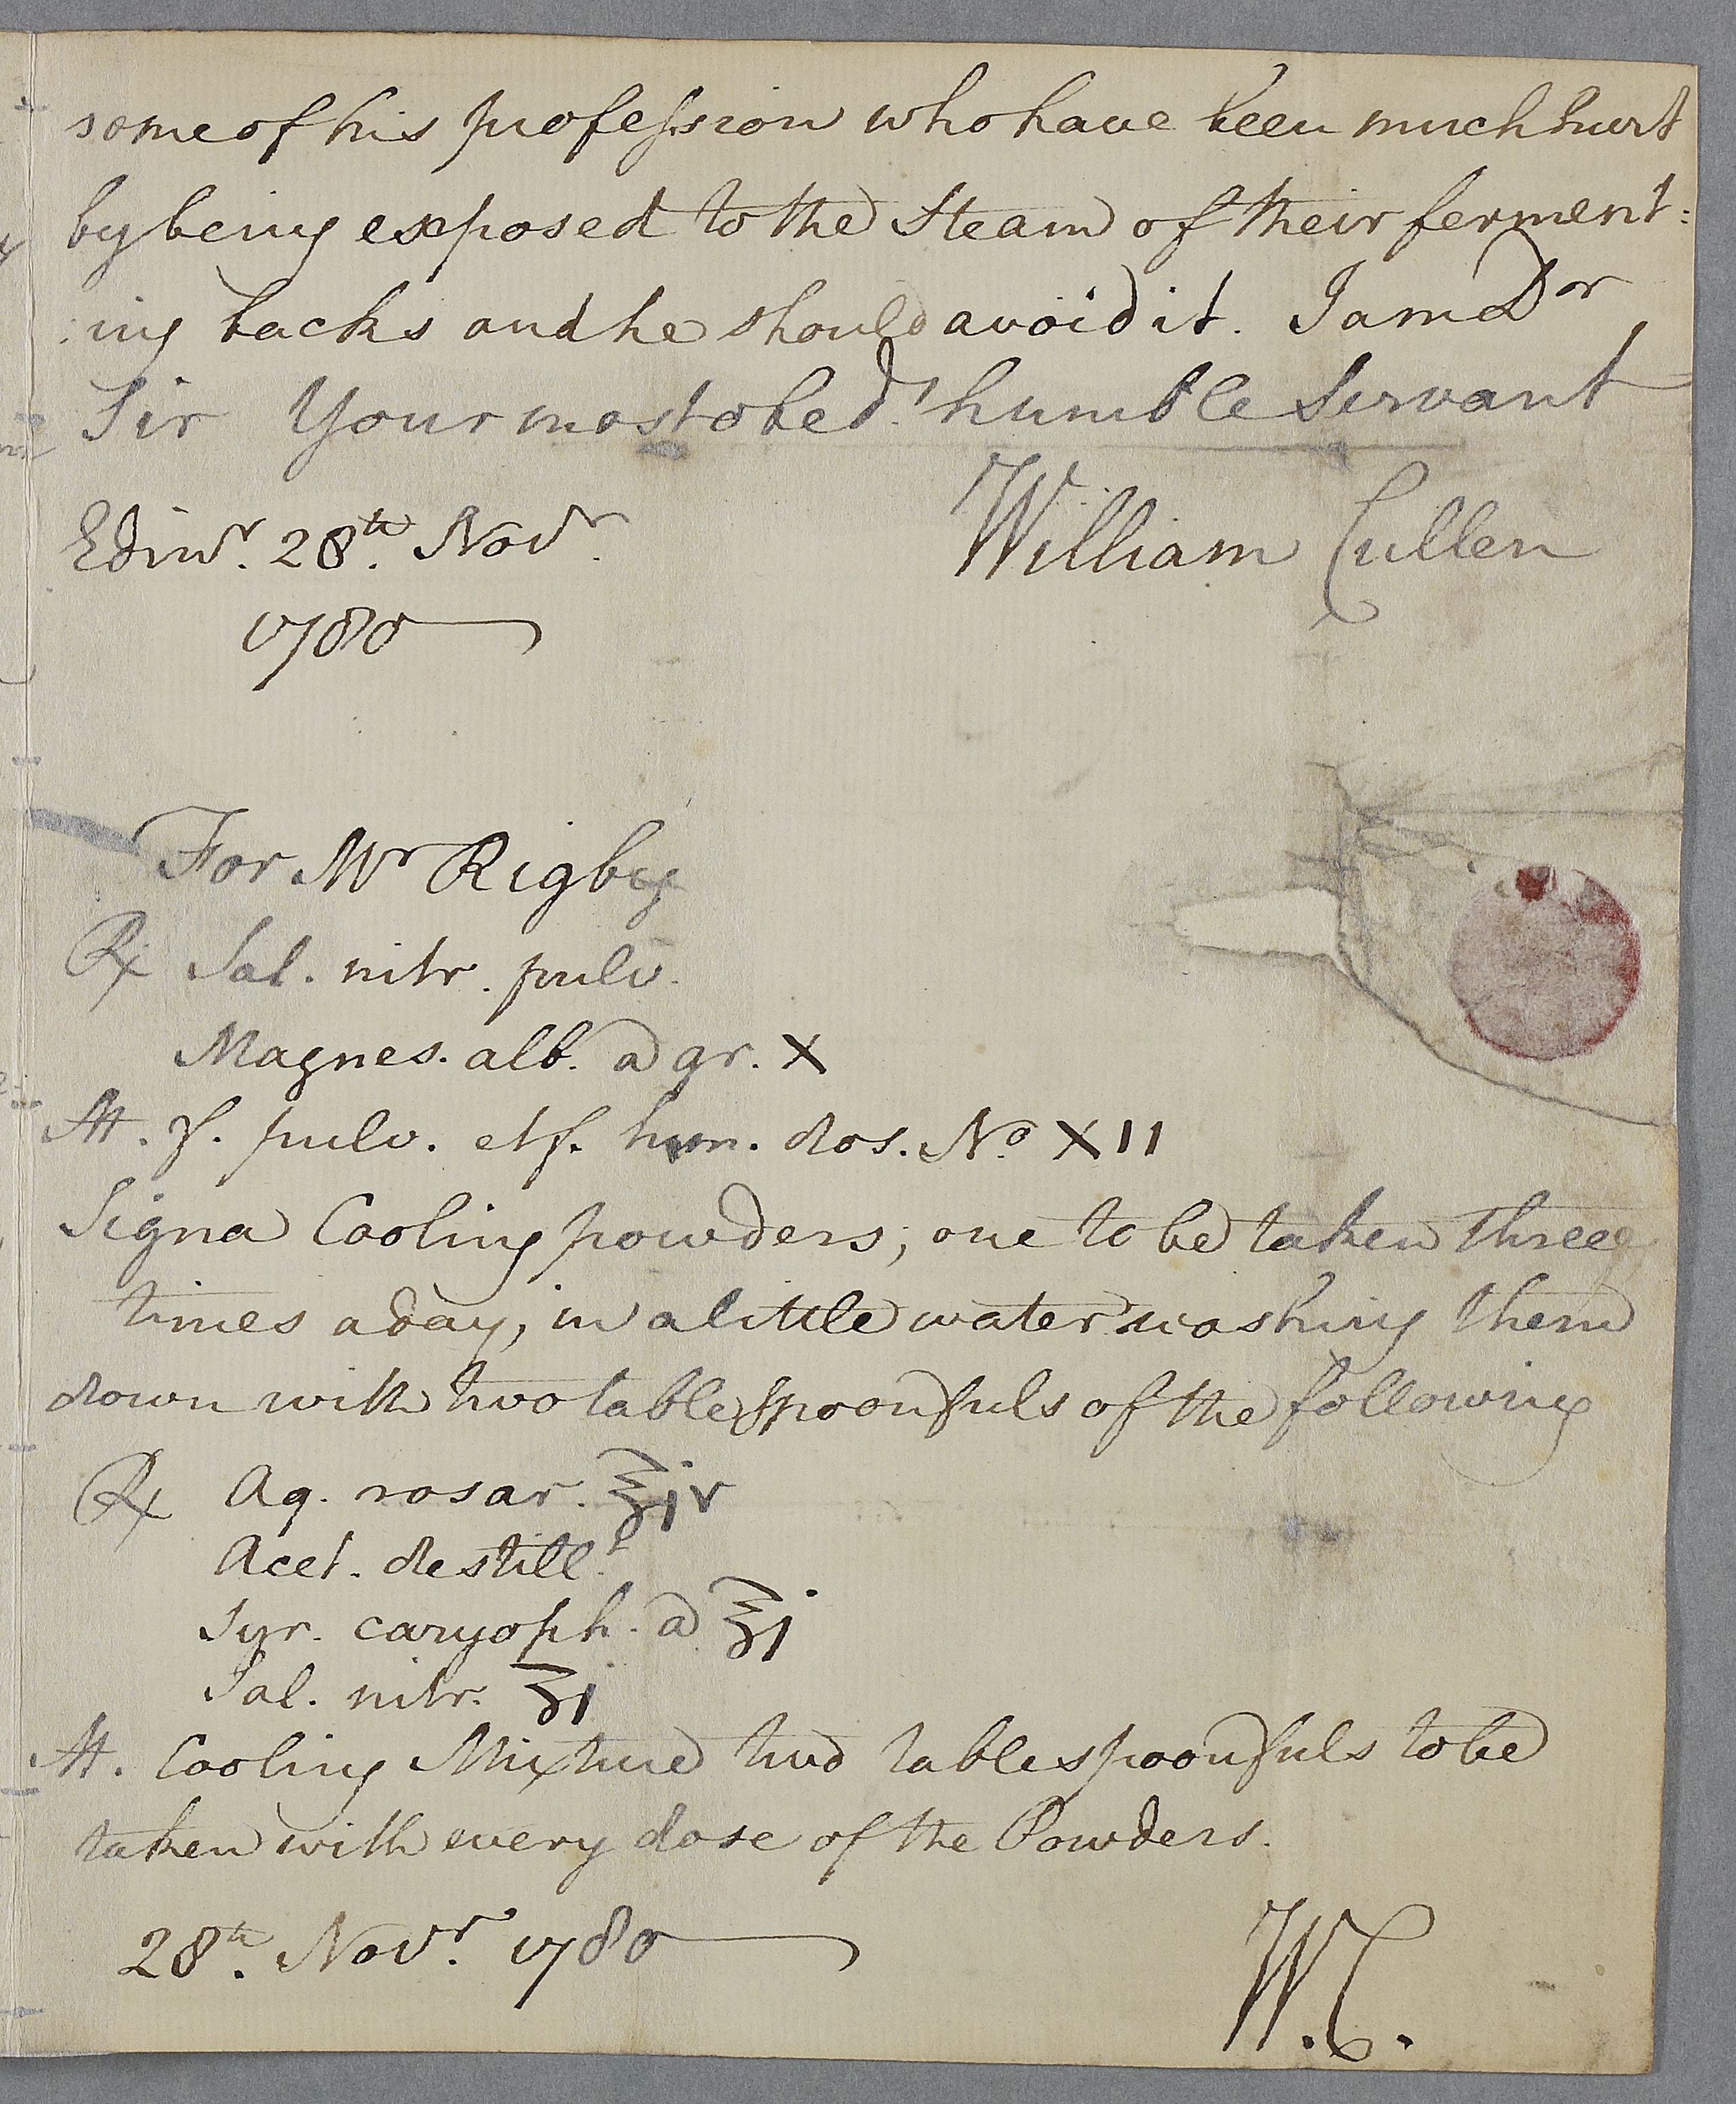 some of his profession who have been much hurt
by being exposed to the Steam of their ferment:
:ing backs and he should avoid it. I am Dr
Sir Your most obedt. humble Servant
William Cullen
Edinr. 28th. Novr.
1780
For Mr Rigby
℞ Sal. nitr. pulv.
Magnes. alb. a gr. X
M. f. pulv. et f. hmn. dos. No. XII
Signa Cooling powders, one to be taken three
times a day, in a little water washing them
down with two table spoonfuls of the following
℞ Aq. rosar. ℥iv
Acet. destill.
Syr. caryoph. a ℥j
Sal. nitr. ʒj
M. Cooling Mixture two tablespoonfuls to be
taken with every dose of the Powders.
28th. Novr. 1780
W.C.